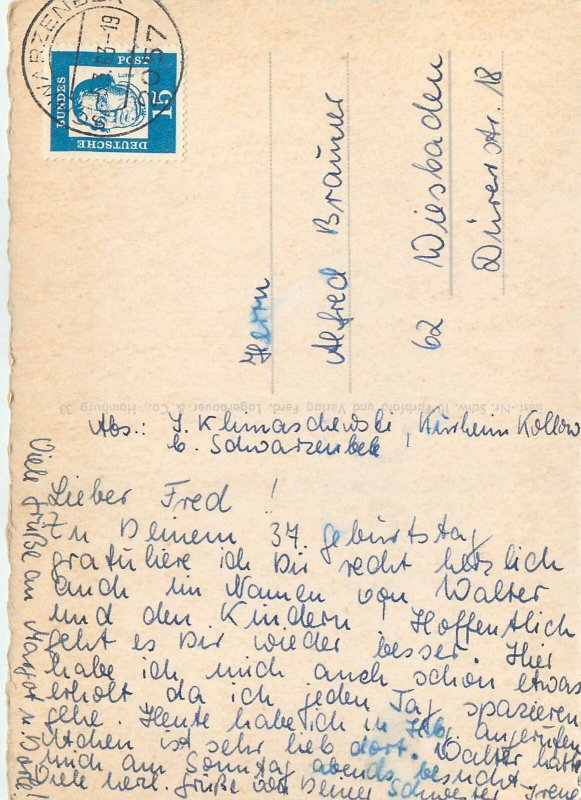 WARZENBEK
2057
63-19
DEUTSCHE
BUNDES
POST
15
Herrn
Alfred Brauner
62 Wiesbaden
Dürerstr. 18
Best.-Nr. Schw. 10 Farbfoto und Verlag Ferd. Lagerbauer & Co., Hamburg 33
Abs.: I. Klimaschewski, Kollow
b. Schwarzenbek
Lieber Fred!
Zu Deinem 37. geburtstag
gratuliere ich Dir recht herzlich
auch im Namen von Walter
und den Kindern! Hoffentlich
geht es Dir wieder besser. Hier
habe ich mich auch schon etwas
erholt da ich jeden Tag spazieren
gehe. Heute habe ich in Hbg. angerufen
ist sehr lieb dort. Walter hatte
mich am Sonntag abends besucht.
Viele herzl. grüße von Deiner Schwester Irene
Viele grüße an Margot u.